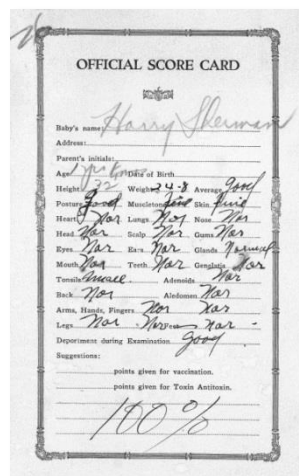 OFFICIAL SCORE CARD
Baby's name: Harry Sherman
Address:
Parent's initials:
Age: Date of Birth
Height 32 Weight 24-8 Average Good
Posture good Muscletone fine Skin
Heart Nor Lungs Nor Nose Nor
Head Nor Scalp Nor Gums Nor
Eyes Nor Ears Nor Glands Normal
Mouth Nor Teeth Nor Genitalia Nor
Tonsils Small Adenoids Nor
Back Nor Abdomen Nor
Arms, Hands, Fingers Nor Nor
Legs Nor Nerves Nor
Department during Examination Good
Suggestions:
points given for vaccination.
points given for Toxin Antitoxin.
100%